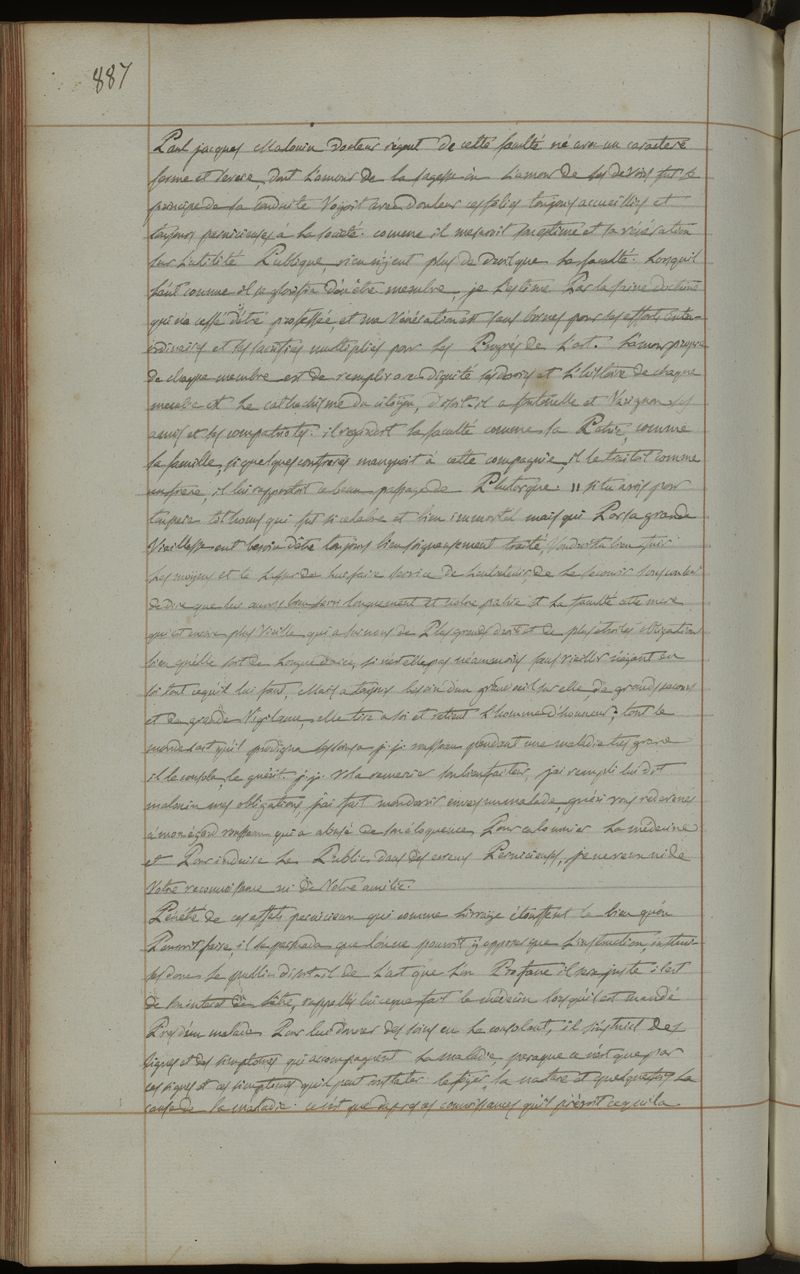 887
Paul jacques Malouin docteur régent de cette faculté né avec un caractere
ferme et severe, dont l'amour de la sagesse l'amour de ses devoirs fut le
principe de sa conduite Voyoit avec douleur ces folies toujours accueillies et
toujours pernicieuses à la société. comme il mesuroit son estime et sa vénération
sur l'utilité Publique, rien n'eut plus de droit que la faculté. Lorsqu'il
faut comme il se glorifia d'en être membre, je l'estime Par la saine doctrine
qui n'a cessé d'être professée, et ma Vénération est sans bornes pour les efforts extra-
ordinaires et les sacrifices multipliés pour les Progrès de L'art. L'amour propre
de chaque membre est de remplir avec dignité ses devoirs et L'histoire de chaque
membre est Le cathéchisme du citoyen, disoit-il a fontenelle et Varignon ses
amis et ses compatriotes. il regardoit la faculté comme sa Patrie, comme
sa famille, si quelques confreres manquoit à cette compagnie, il le traitoit comme
un frere, il lui rapportoit ce beau passage de Plutarque. " si tu avois pour
ton pere tithonus qui fut si celebre et bien immortel mais qui Par sa grande
Vieillesse eut besoin d'être toujours bien soigneusement traité, Voudrois tu bien fuir
Les moyens et te lasser de lui faire service de l'entretenir, de Le secourir sous ombre
de dire que lui aurois bien servi longuement et notre patrie et La faculté cette mere
qui est encore plus Vieille qui a sur nous de Plus grands droits et de plus étroites obligations
bien qu'elle soit de longue durée, si n'est elle pas néanmoins sans vieillir n'ayant en
soi tout ce qu'il lui faut, Mais a toujours besoin d'un grand oeil sur elle, de grands secours
et de grande Vigilance, elle tire a soi et retient L'homme d'honneur; tout le
monde sait qu'il prodigua ses soins a j. j. rousseau pendant une maladie tres grave
il le consola, le guérit. j. j. vola remercier son bienfaiteur, j'ai rempli lui dit
malouin mes obligations, j'ai fait mon devoir envers un malade, guéri vous redevenés
à mon égard rousseau qui a abusé de son éloquence Pour calomnier La médecine
et Pour induire Le Public dans des erreurs Pernicieuses, je ne veux ni de
Votre reconnoissance ni de Votre amitié.
Pénétré de ces effets pernicieux qui comme l'ivraie étouffent le bien qu'on
Pouvoit faire, il se persuada que l'on ne pouvoit y opposer que L'instruction,
donc le public disoit-il de L'art que L'on Profane il sera juste il est
de son interet de l'être, rappellés lui ce que fait le médecin lorsqu'il est mandé
Près d'un malade Pour lui donner des soins en Le consolant, il s'instruit Des
signes et des simptomes qui accompagnent La maladie, parceque ce n'est que par
ces signes et ces simptomes qu'il peut constater le siège, la nature et quelquefois La
cause de la maladie. ce n'est que d'après ces connoissances qu'il prévoit ce qui la